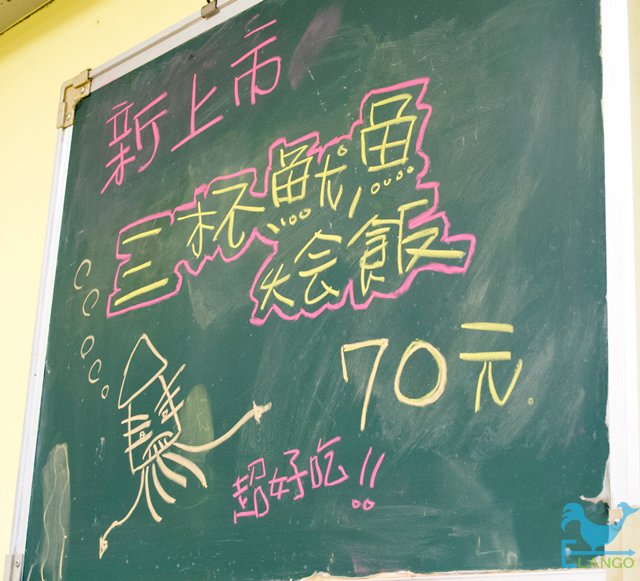 新上市
三杯魷魚
燴飯
70元
超好吃!!
ELANGO